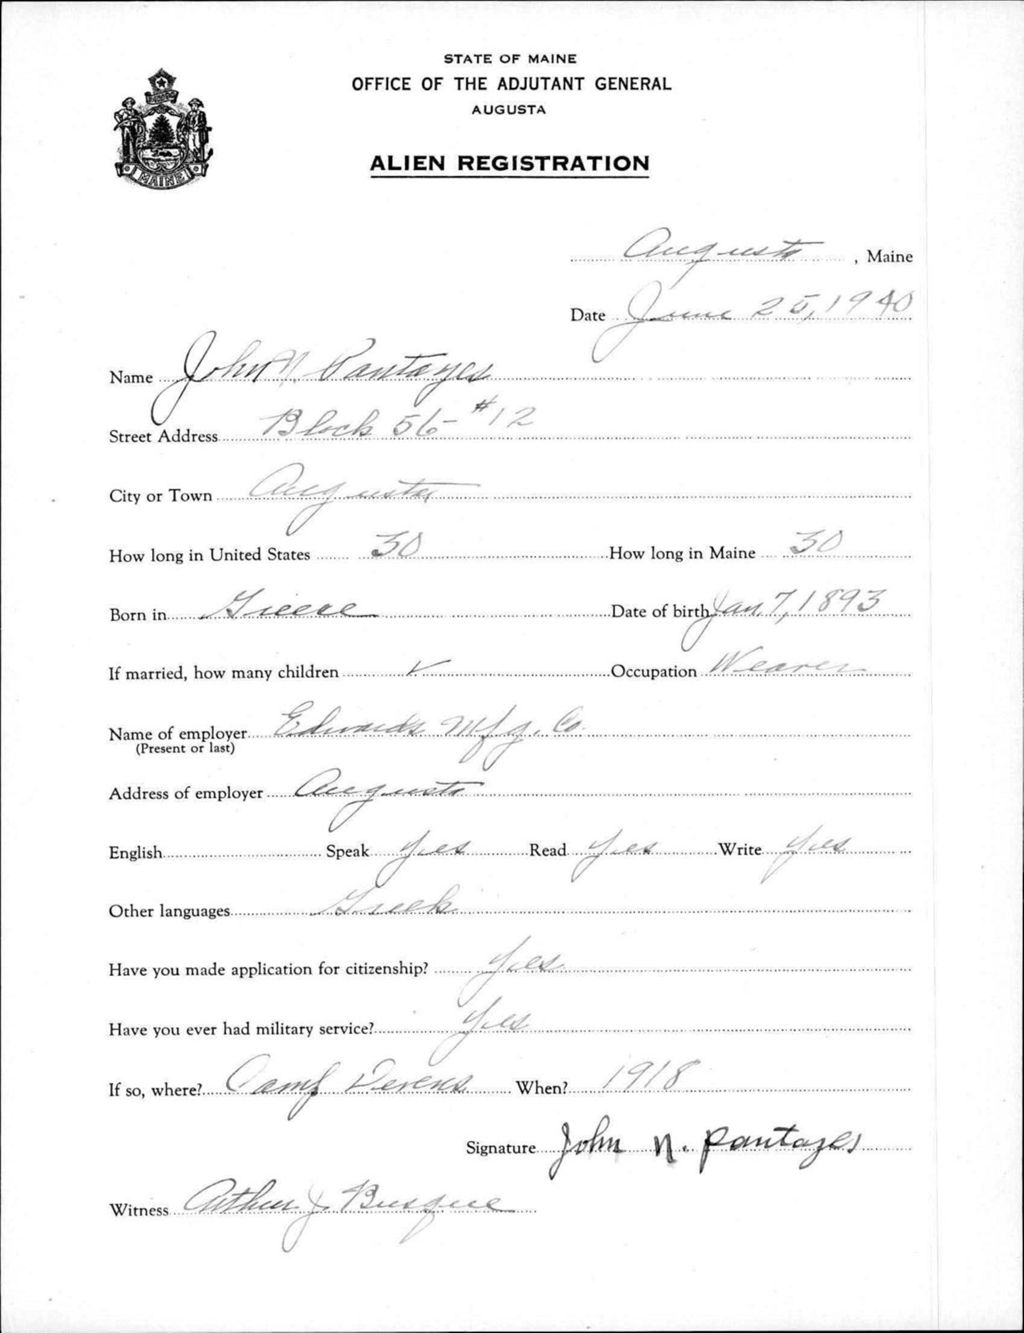 STATE OF MAINE
OFFICE OF THE ADJUTANT GENERAL
AUGUSTA
ALIEN REGISTRATION
MAINE
Augusta, Maine
Date June 25, 1940
Name John N. Pantazes
Street Address Block 56 - #12
City or Town Augusta
How long in United States 30 How long in Maine 30
Born in Greece Date of birth Jan. 7, 1893
If married, how many children ✓ Occupation Weaver
Name of employer Edwards Mfg. Co.
(Present or last)
Address of employer Augusta
English Speak Yes Read Yes Write Yes
Other languages Greek
Have you made application for citizenship? Yes
Have you ever had military service? Yes
If so, where? Camp Devens When? 1918
Signature John N. Pantazes
Witness Arthur J. Busque